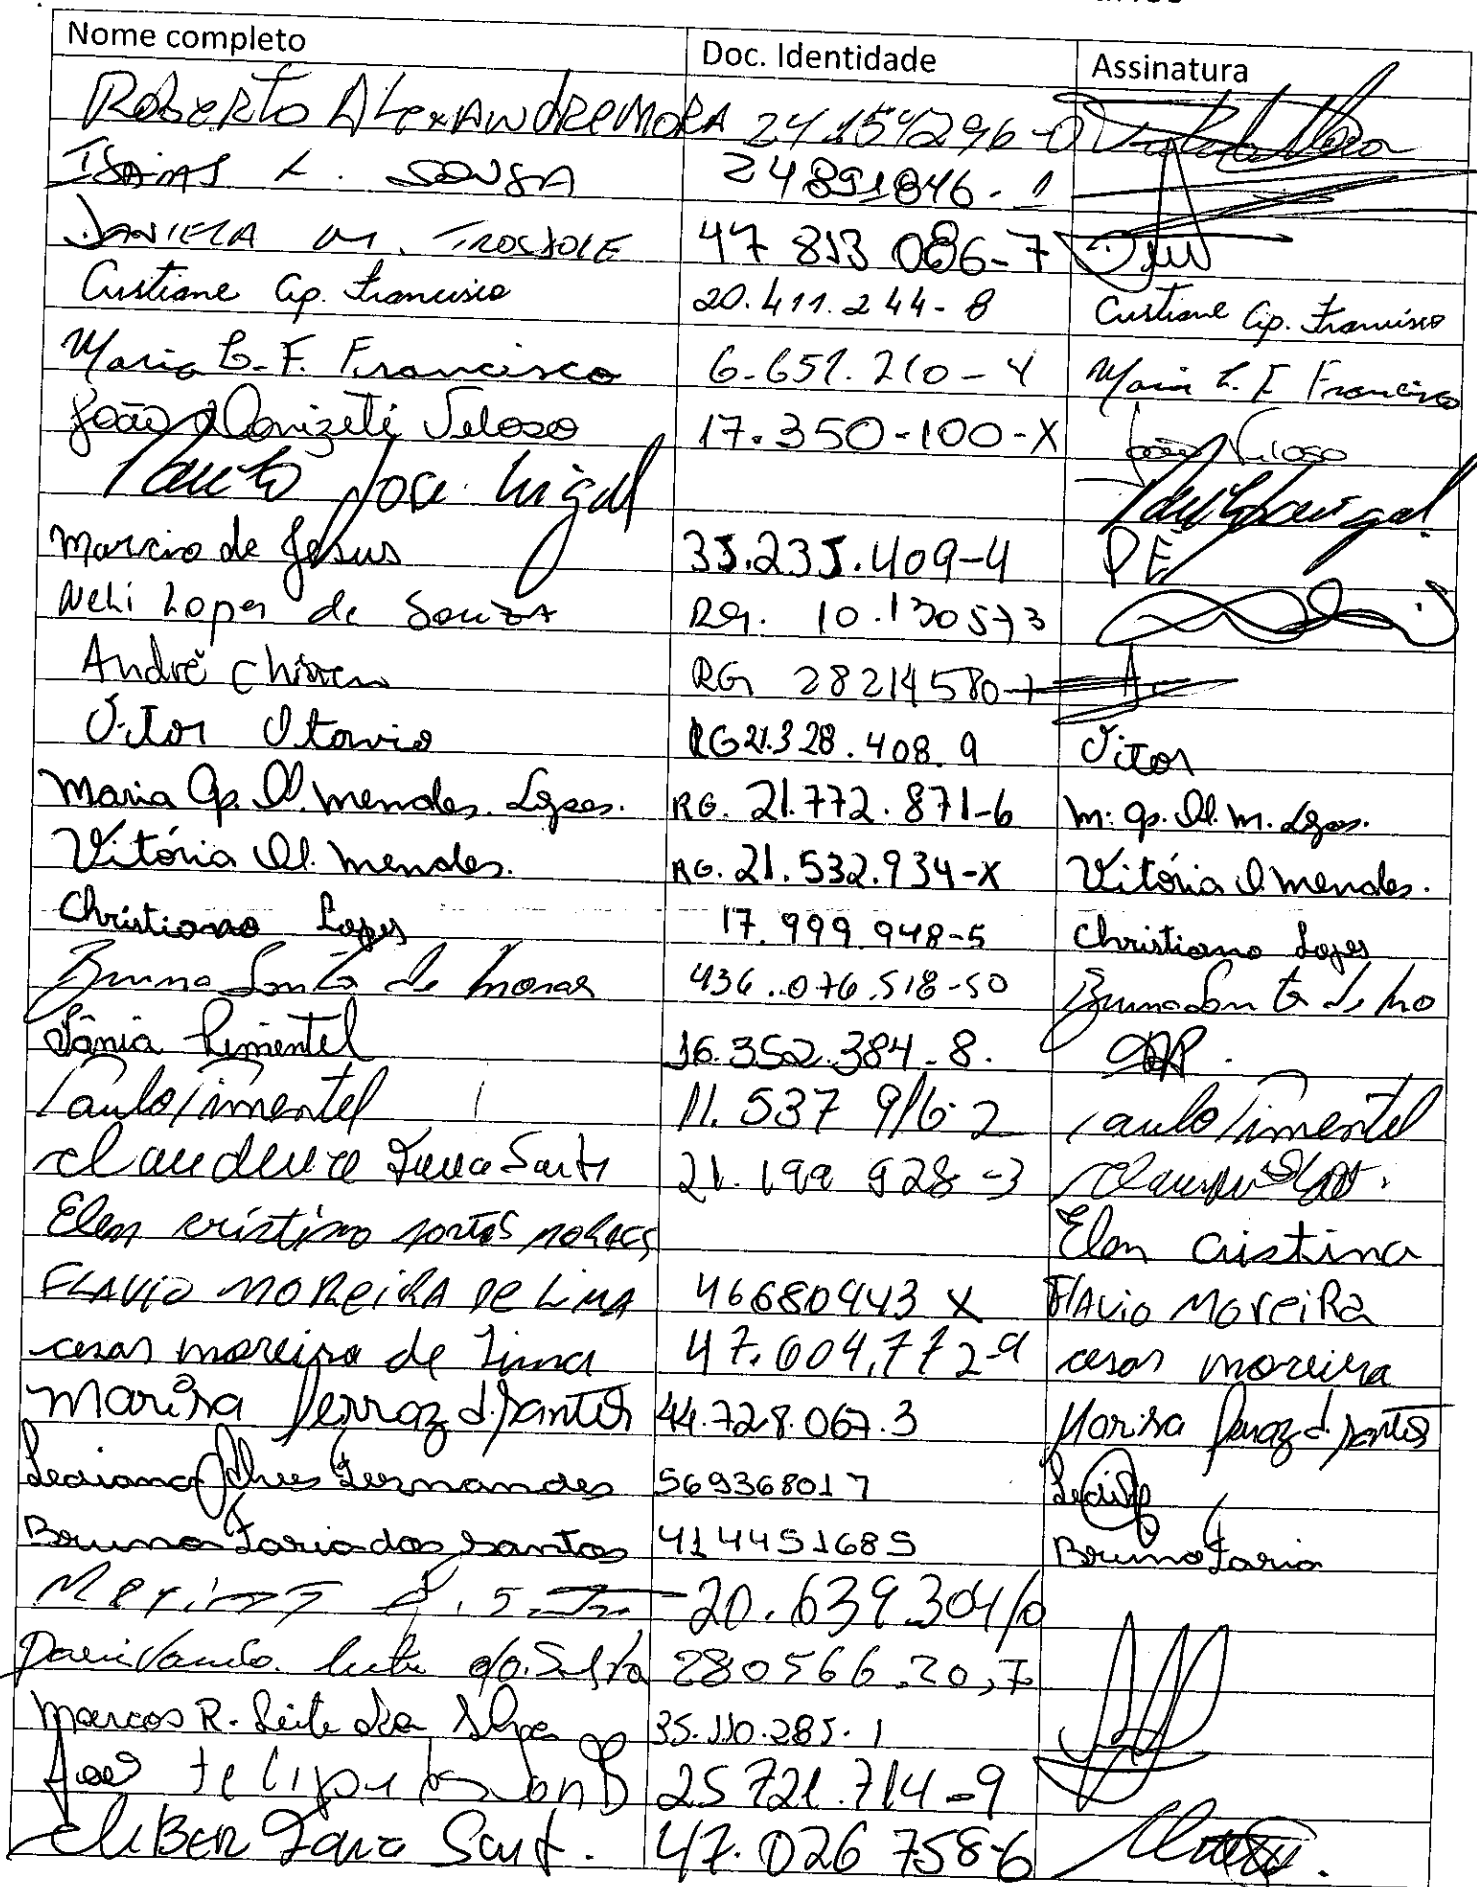 Nome completo Doc. Identidade Assinatura
Roberto Alexandre Mora 24154296-0
Isaias L. Sousa 24891846-1
Daniela M. 47 813 086-7
Cristiane Ap. Francisco 20.411.244-8 Cristiane Ap. Francisco
Maria C. F. Francisco 6.651.210-4 Maria C. F. Francisco
João Donizeti Veloso 17.350-100-X João Veloso
Paulo Jose
Marcio de Jesus 35.235.409-4
Neli Lopes de Souza RG. 10.130573
André RG 28214580-7
Vitor Otavio RG 21.328.408.9 Vitor
Maria Ap. D. Mendes. Lopes. RG. 21.772.871-6 M. Ap. D. M. Lopes.
Vitória D. Mendes. RG. 21.532.934-X Vitória D. Mendes.
Christiano Lopes 17.999.948-5 Christiano Lopes
Bruna de 436.076.518-50 Bruna
Sânia Pimentel 16.352.384-8.
Paulo Pimentel 11.537 916-2 Paulo Pimentel
21.199 928-3
Elen Cristina Moraes Elen Cristina
FLAVIO MOREIRA DE LIMA 46680443 X FLAVIO MOREIRA
cesar moreira de Lima 47.604.772-9 cesar moreira
Marisa Ferraz d. Santos 44.728.067.3 Marisa Ferraz d. Santos
Alves Fernandes 569368017
Bruno Faria dos Santos 414451685 Bruno Faria
20.639.304/0
da Silva 280566.20,7
Marcos R. Leite da Silva 35.110.285.1
Felipe 25 721.714-9
47.026 758-6